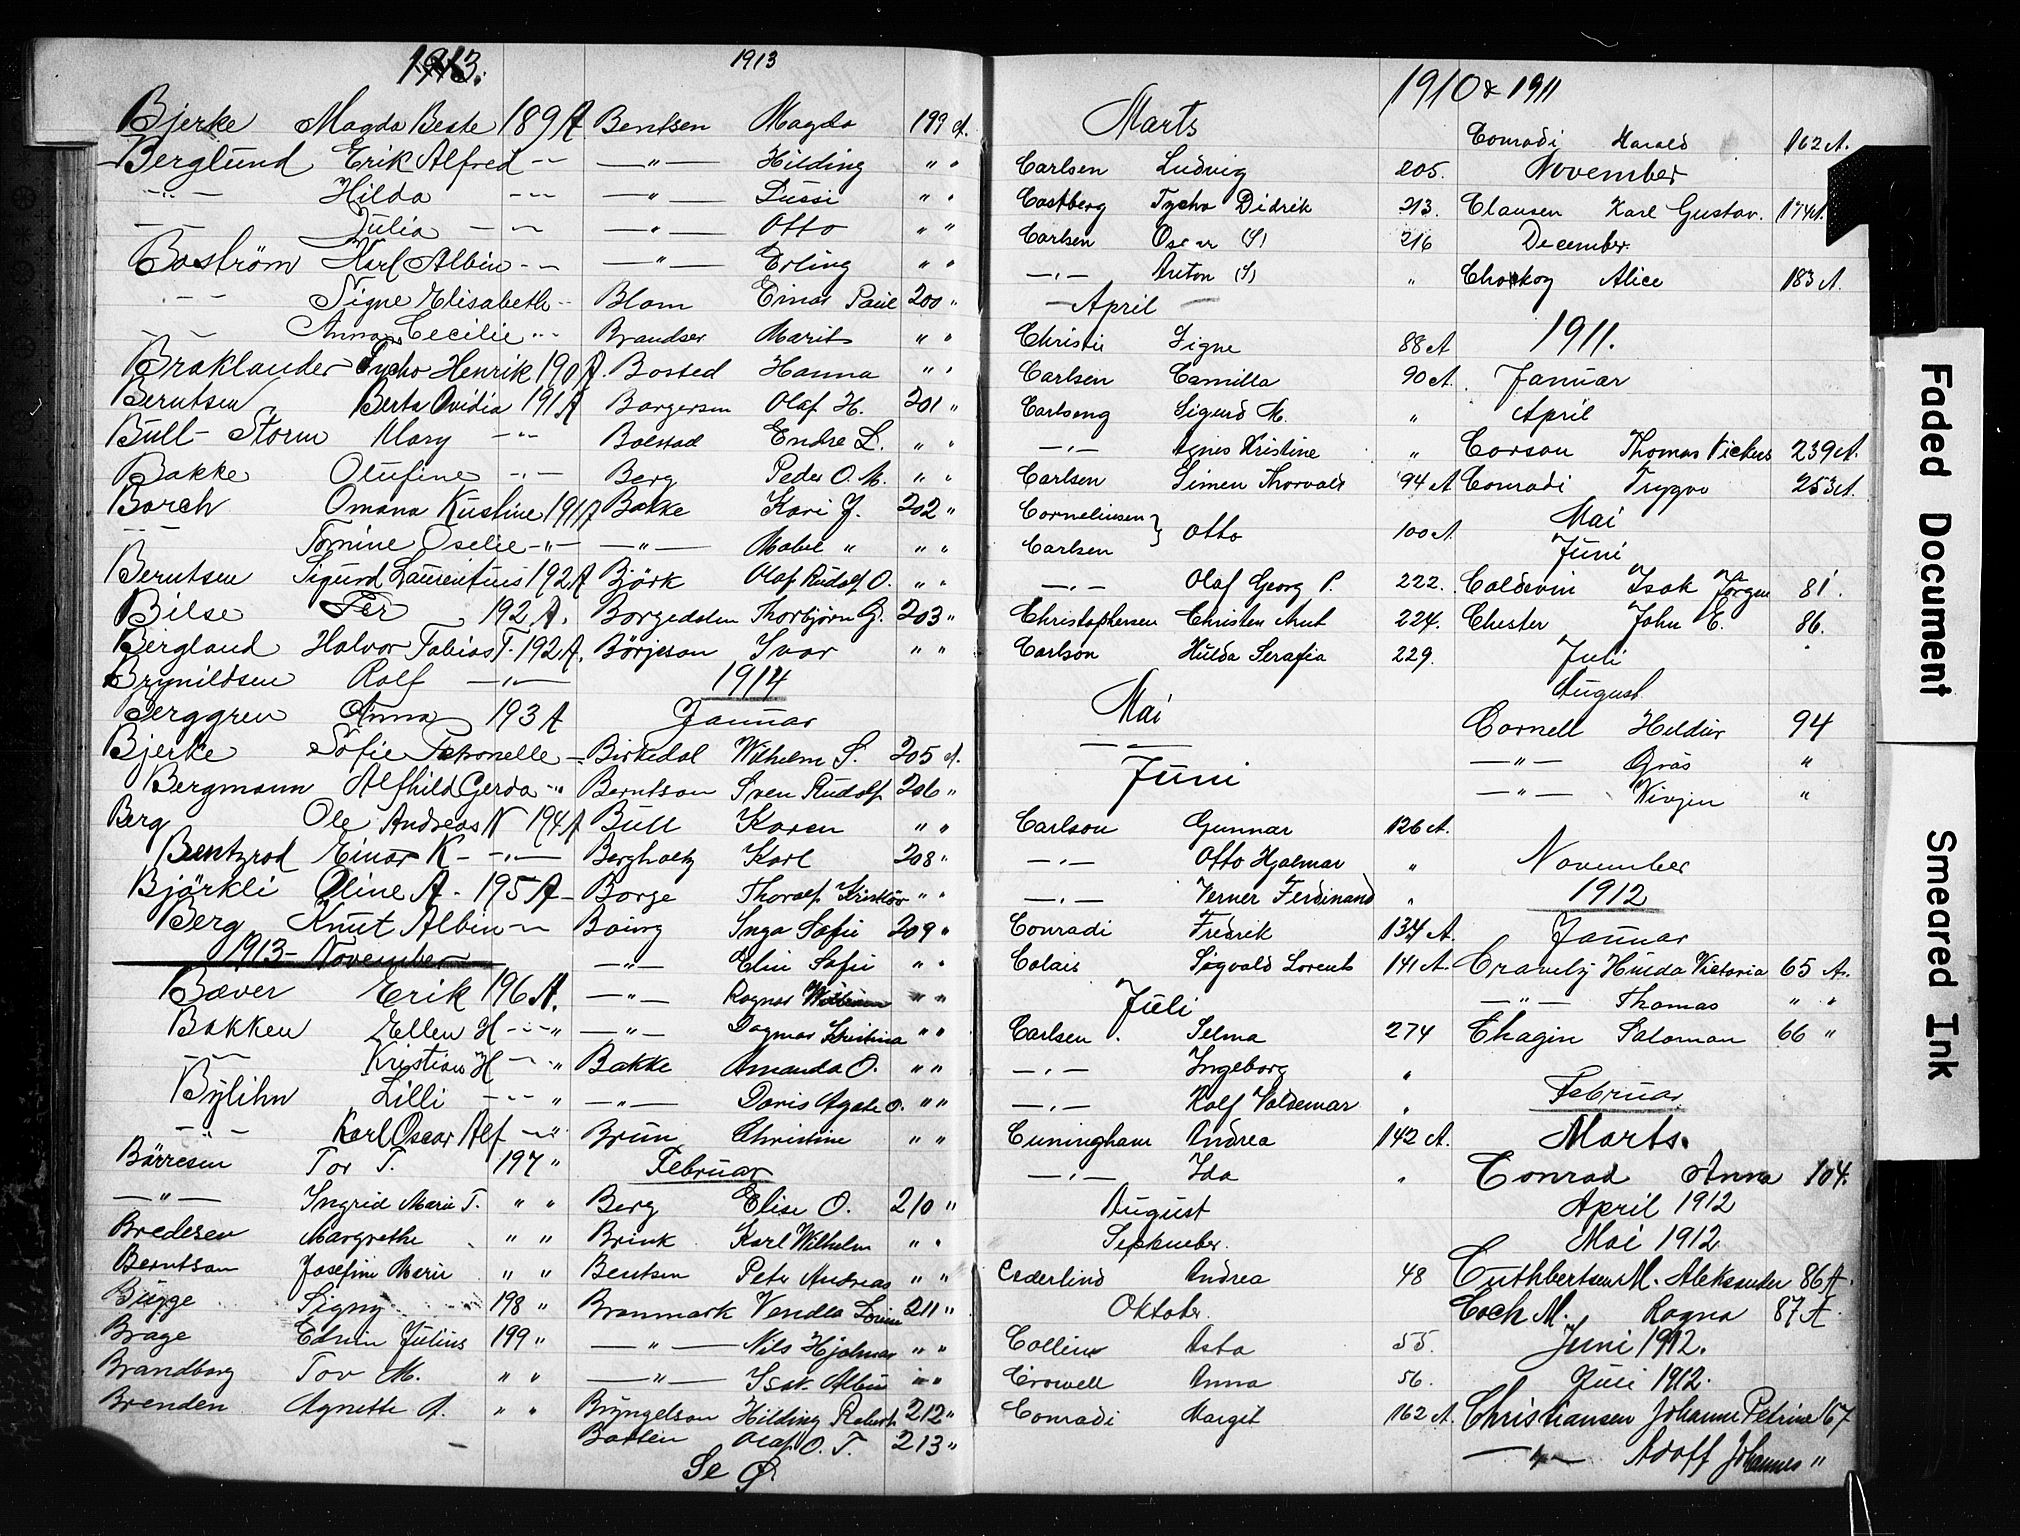 1913.
Bjerke Magda Beate 189 A
Berglund Erik Alfred -"-
-"- Hilda -"-
-"- Julia -"-
Boström Karl Albin -"-
-"- Signe Elisabeth -"-
-"- Anna Cecilie -"-
Braklander Tycho Henrik 190 A.
Berntsen Berta Ovidia 191 A
Bull-Storm Mary -"-
Bakke Olufine -"-
Borch Omana Kristine 191 A
-"- Tomine Oselie -"-
Berntsen Sigurd Laurentius 192 A
Bilse Per 192 A.
Bergland Halvor Tobias T. 192 A.
Brynildsen Rolf -"-
Berggren Anna 193 A
Bjerke Sofie Petronelle -
Bergmann Alfhild Gerda -"-
Berg Ole Andreas N 194 A
Bentzrod Einar K -"-
Björkli Oline A. 195 A
Berg Knut Albin -"-
1913 - November
Bæver Erik 196 A.
Bakken Ellen H -"- "
-"- Kristian H -"- "
Bylihn Lilli -"- "
-"- Karl Oscar Alf -"- "
Börresen Tor T. 197 "
-"- Ingrid Marie T. " "
Bredesen Margrethe " "
Berntsen Josefine Marie " "
Bugge Signy 198 "
Brage Edvin Julius 199 "
Brandborg Tov M. " "
Brenden Agnette A. " "
1913
Bentsen Magda 199 A.
-"- Hilding " "
-"- Lussi " "
-"- Otto " "
-"- Erling " "
Blom Einar Paul 200 "
Brandser Marit " "
Bosted Hanna " "
Borgersen Olaf H. 201 "
Bolstad Endre L. " "
Berg Peder O. M. " "
Bakke Kari J. 202 "
-"- Mabel " " "
Björk Olaf Rudolf O. " "
Borgedalen Thorbjørn G. 203 "
Börjeson Ivar " "
1914
Januar
Birkedal Wilhelm S. 205 A.
Berntson Sven Rudolf 206 "
Bull Karen " "
Bergholtz Karl 208 "
Borge Thoralf Kristian " "
Boing Inga Sofie 209 "
-"- Elin Sofie " "
-"- Ragnar " "
-"- Dagmar Kristina " "
Bakke Amanda O. " "
-"- Doris Agate O. " "
Brun Christine " "
Februar
Berg Elise O. 210 "
Brink Karl Wilhelm " "
Bentsen Peter Andreas " "
Branmark Vendla 211 "
-"- Nils Hjalmar " "
-"- Isak Albin " "
Bryngelson Hilding Robert 212 "
Botten Olaf O. T. 213 "
Se Ø.
1910 & 1911
Marts
Carlsen Ludvig 205.
Castberg Tycho Didrik 213.
Carlsen Oscar (S) 216
-"- Anton (S) "
- April -
Christie Signe 88 A
Carlsen Camilla 90 A.
Carlseng Sigurd M. "
-"- Agnes Kristine "
Carlsen Simen Thorvald 94 A
Corneliussen
Carlsen } Otto 100 A.
-"- Olaf Georg P. 222.
Christophersen Christen Anut 224.
Carlson Hulda Serafia 229.
Mai
-"-
Juni
Carlson Gunnar 126 A.
-"- Otto Hjalmar "
-"- Verner Ferdinand "
Conradi Fredrik 134 A.
Colais Sigvald Lorents 141 A.
Juli
Carlsen Selma 274
-"- Ingeborg "
-"- Rolf Valdemar "
Cuningham Andrea 142 A.
-"- Ida "
August
September.
Cederlind Andrea 48
Oktober.
Collin Asta 55.
Crowell Anna 56.
Conradi Margit 162 A.
Conradi Harald 162 A.
November
Clausen Karl Gustav. 174 A.
December.
Alice 183 A.
1911.
Januar
April
Corson Thomas Vickers 239 A.
Conradi Trygve 253 A.
Mai
Juni
Coldevin Isak Jørgen 81.
Chester John E. 86.
Juli
August
Cornell Heldur 94
-"- Gräs "
-"- Vivjen "
November
1912
Januar
Hulda Victoria 65 A.
-"- Thomas " "
Chagin Saloman 66 "
Februar.
Marts.
Conrad Anna 104.
April 1912
Mai 1912
Cuthbertsen M. Aleksander 86 A.
Coch M. Ragna 87 A.
Juni 1912.
Juli 1912.
Christiansen Johanne Petrine 67
-"- Adolf Johannes "
Faded Document
Smeared Ink